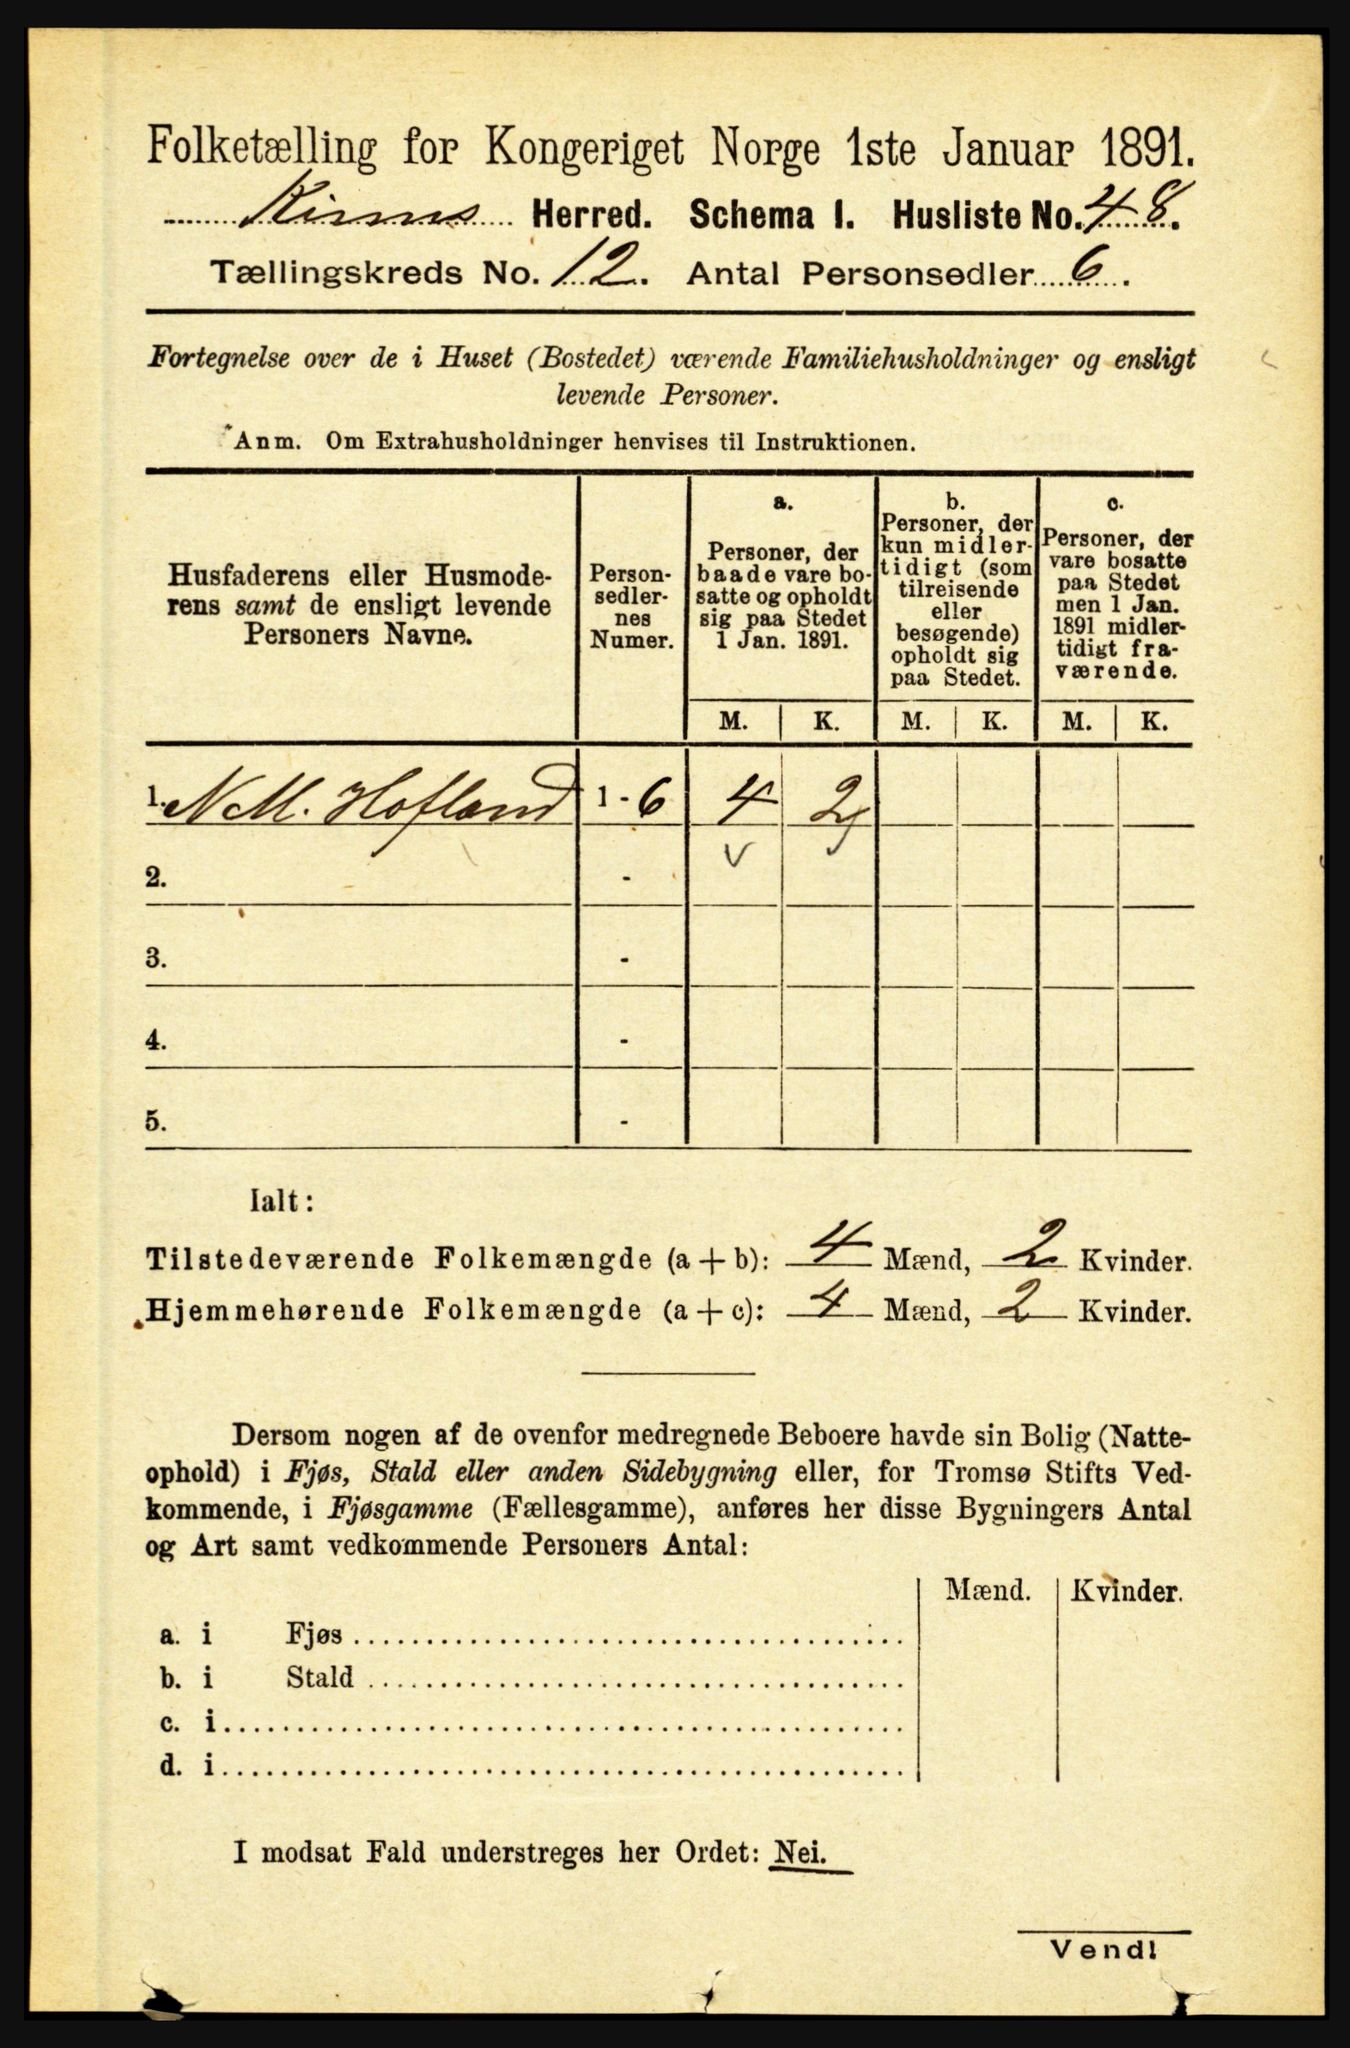 Folketælling for Kongeriget Norge 1ste Januar 1891.
Kinns Herred. Schema I. Husliste No. 48.
Tællingskreds No. 12. Antal Personsedler 6.
Fortegnelse over de i Huset (Bostedet) værende Familiehusholdninger og ensligt
levende Personer.
Anm. Om Extrahusholdninger henvises til Instruktionen.
Husfaderens eller Husmode-
rens samt de ensligt levende
Personers Navne.
Person-
sedler-
nes
Numer.
a.
Personer, der
baade vare bo-
satte og opholdt
sig paa Stedet
1 Jan. 1891.
b.
Personer, der
kun midler-
tidigt (som
tilreisende
eller
besøgende)
opholdt sig
paa Stedet.
c.
Personer, der
vare bosatte
paa Stedet
men 1 Jan.
1891 midler-
tidigt fra-
værende.
M. K. M. K. M. K.
1. N M. Hofland 1 - 6 4 2
2. -
3. -
4. -
5. -
Ialt:
Tilstedeværende Folkemængde (a + b): 4 Mænd, 2 Kvinder.
Hjemmehørende Folkemængde (a + c): 4 Mænd, 2 Kvinder.
Dersom nogen af de ovenfor medregnede Beboere havde sin Bolig (Natte-
ophold) i Fjøs, Stald eller anden Sidebygning eller, for Tromsø Stifts Ved-
kommende, i Fjøsgamme (Fællesgamme), anføres her disse Bygningers Antal
og Art samt vedkommende Personers Antal:
Mænd. Kvinder.
a. i Fjøs
b. i Stald
c. i
d. i
I modsat Fald understreges her Ordet: Nei.
Vend!